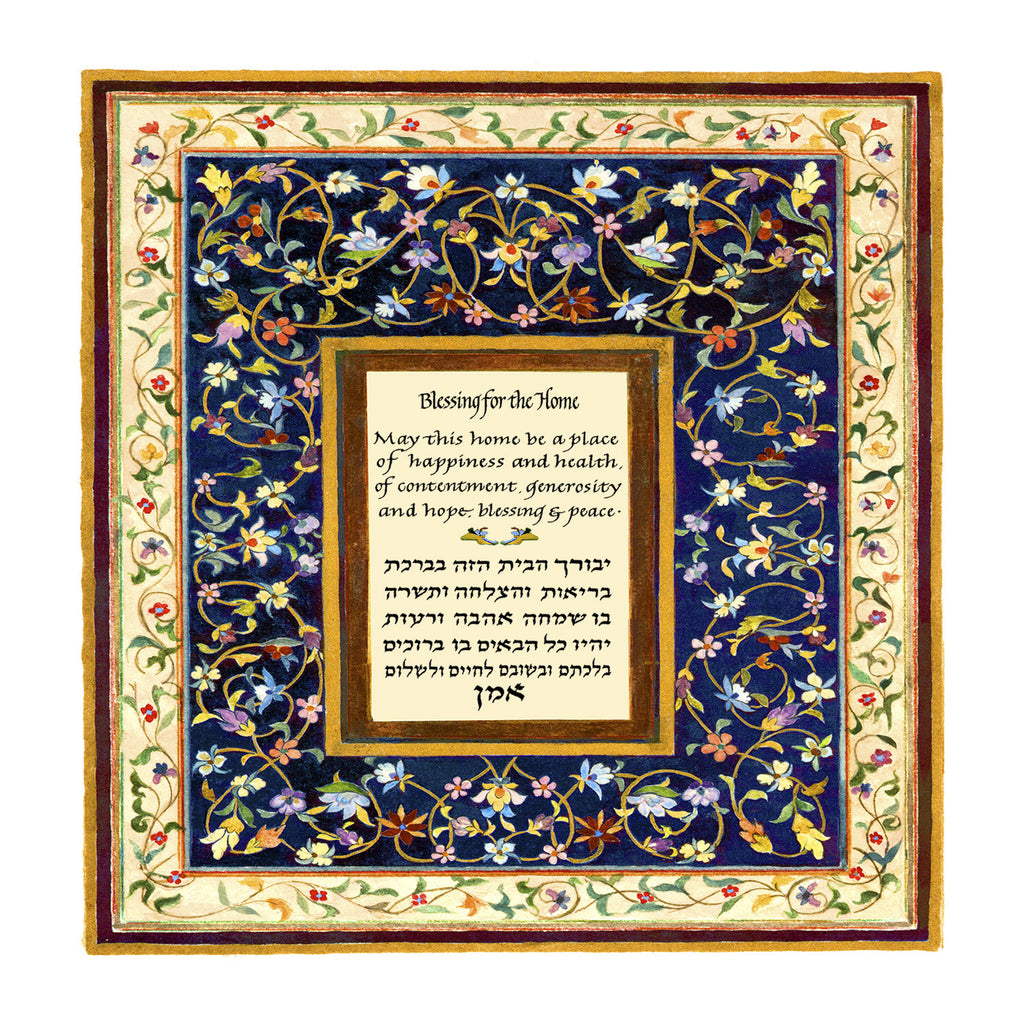 Blessing for the Home
May this home be a place
of happiness and health,
of contentment, generosity
and hope, blessing & peace.
יבורך הבית הזה בברכת
בריאות והצלחה ותשרה
בו שמחה אהבה ורעות
יהיו כל הבאים בו ברוכים
בלכתם ובשובם לחיים ולשלום
אמן